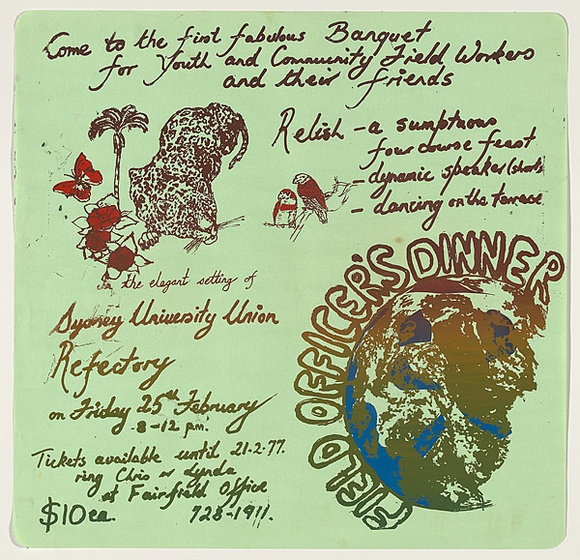 Come to the first fabulous Banquet
for Youth and Community Field Workers
and their friends
Relish - a sumptuous
four course feast
- dynamic speaker (short)
- dancing on the terrace
in the elegant setting of
Sydney University Union
Refectory
on Friday 25th February
8-12 pm.
Tickets available until 21.2.77.
ring Chris or Lynda
at Fairfield Office
$10 ea. 728-1911.
FIELD OFFICER'S DINNER